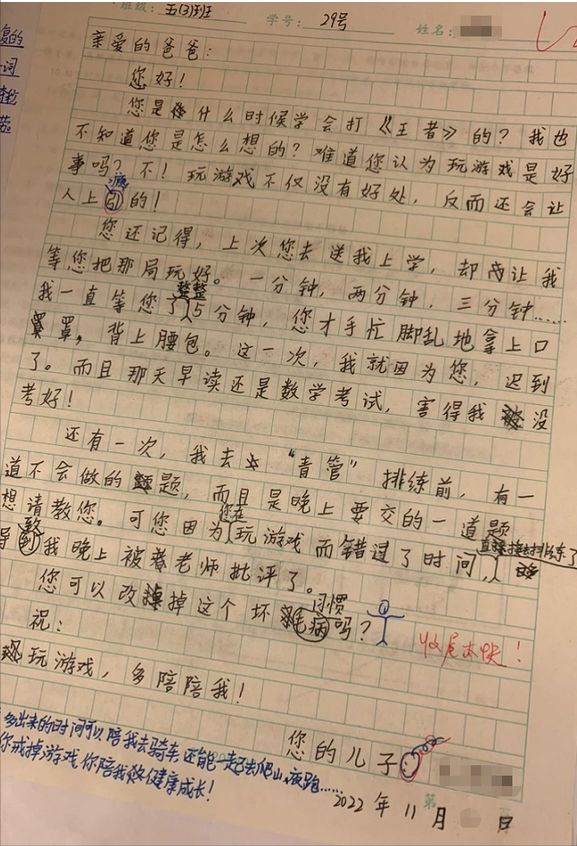 班级：五(3)班 学号：29号 姓名：
亲爱的爸爸：
您好！
您是什么时候学会打《王者》的？我也
不知道您是怎么想的？难道您认为玩游戏是好
事吗？不！玩游戏不仅没有好处，反而还会让
人上瘾的！
您还记得，上次您去送我上学，却让我
等您把那局玩好。一分钟，两分钟，三分钟……
我一直等您整整15分钟，您才手忙脚乱地拿上口
罩，背上腰包。这一次，我就因为您，迟到
了。而且那天早读还是数学考试，害得我没
考好！
还有一次，我去“青管”排练前，有一
道不会做的题，而且是晚上要交的一道题
想请教您。可您因为您在玩游戏而错过了时间，
导致我晚上被老师批评了。
您可以改掉这个坏习惯吗？
收尾太快！
祝：
玩游戏，多陪陪我！
多出来的时间可以陪我去骑车还能一起去爬山夜跑……
你戒掉游戏你陪我健康成长！
您的儿子
2022年11月 日